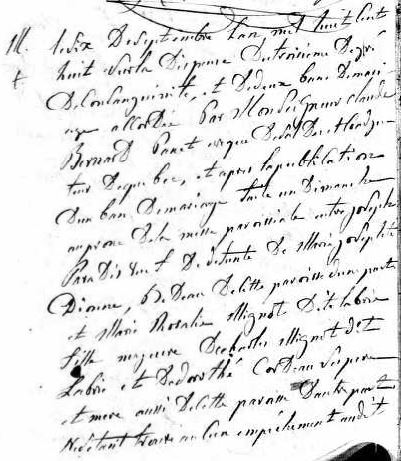 M.
t
le six de septembre l'an mil huit cent
huit vu la Dispense du troisieme Degré
De Consanguinité, et De deux bans De mari
age accordée par Monseigneur Claude
Bernard Panet evêque De
De quebec, et apres la publication
D'un ban De mariage faite un Dimanche
au prone De la messe paroissiale entre joseph
Paradis veuf De defunte De Marie josephte
Dionne, De cette paroisse d'une part
et Marie Rosalie Mignot Dite labrie
fille majeure De charles Mignot dit
Labrie et De dorothé Cordeau ses pere
et mere aussi De cette paroisse D'autre part
Ne s'étant trouvé aucun empêchement audit